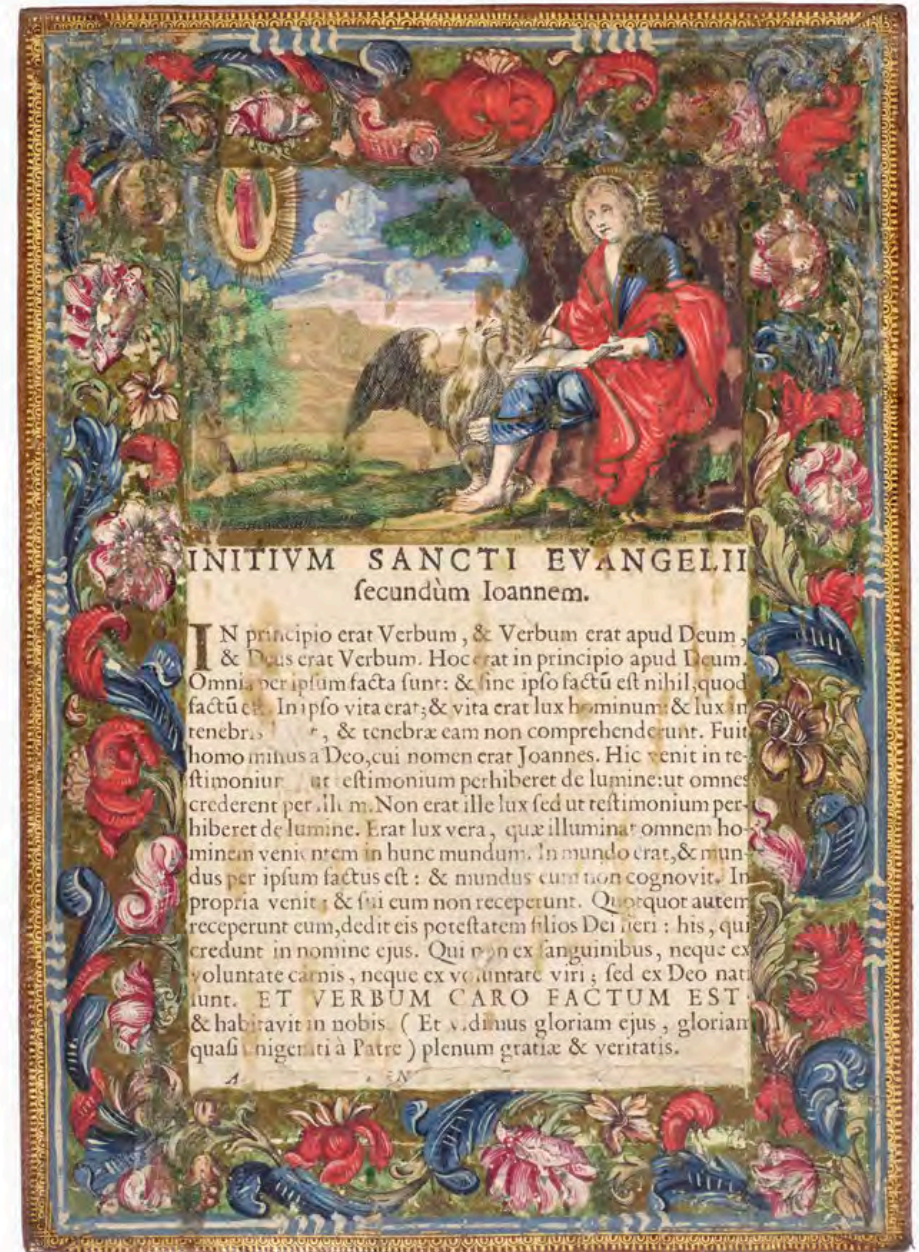 INITIVM SANCTI EVANGELII
ſecundùm Ioannem.
IN principio erat Verbum, & Verbum erat apud Deum,
& Deus erat Verbum. Hoc erat in principio apud Deum.
Omnia per ipſum facta ſunt: & ſine ipſo factū eſt nihil, quod
factū eſt. In ipſo vita erat; & vita erat lux hominum: & lux in
& tenebræ eam non comprehenderunt. Fuit
homo miſſus a Deo, cui nomen erat Joannes. Hic venit in te-
ut teſtimonium perhiberet de lumine: ut omnes
crederent per illum. Non erat ille lux ſed ut teſtimonium per-
hiberet de lumine. Erat lux vera, quæ illuminat omnem ho-
minem venientem in hunc mundum. In mundo erat, & mun-
dus per ipſum factus eſt: & mundus eum non cognovit. In
propria venit; & ſui eum non receperunt. Quotquot autem
receperunt eum, dedit eis poteſtatem filios Dei fieri: his, qui
credunt in nomine ejus. Qui non ex ſanguinibus, neque ex
voluntate carnis, neque ex voluntate viri; ſed ex Deo nati
ſunt. ET VERBUM CARO FACTUM EST
& habitavit in nobis. (Et vidimus gloriam ejus, gloriam
quaſi unigeniti à Patre) plenum gratiæ & veritatis.